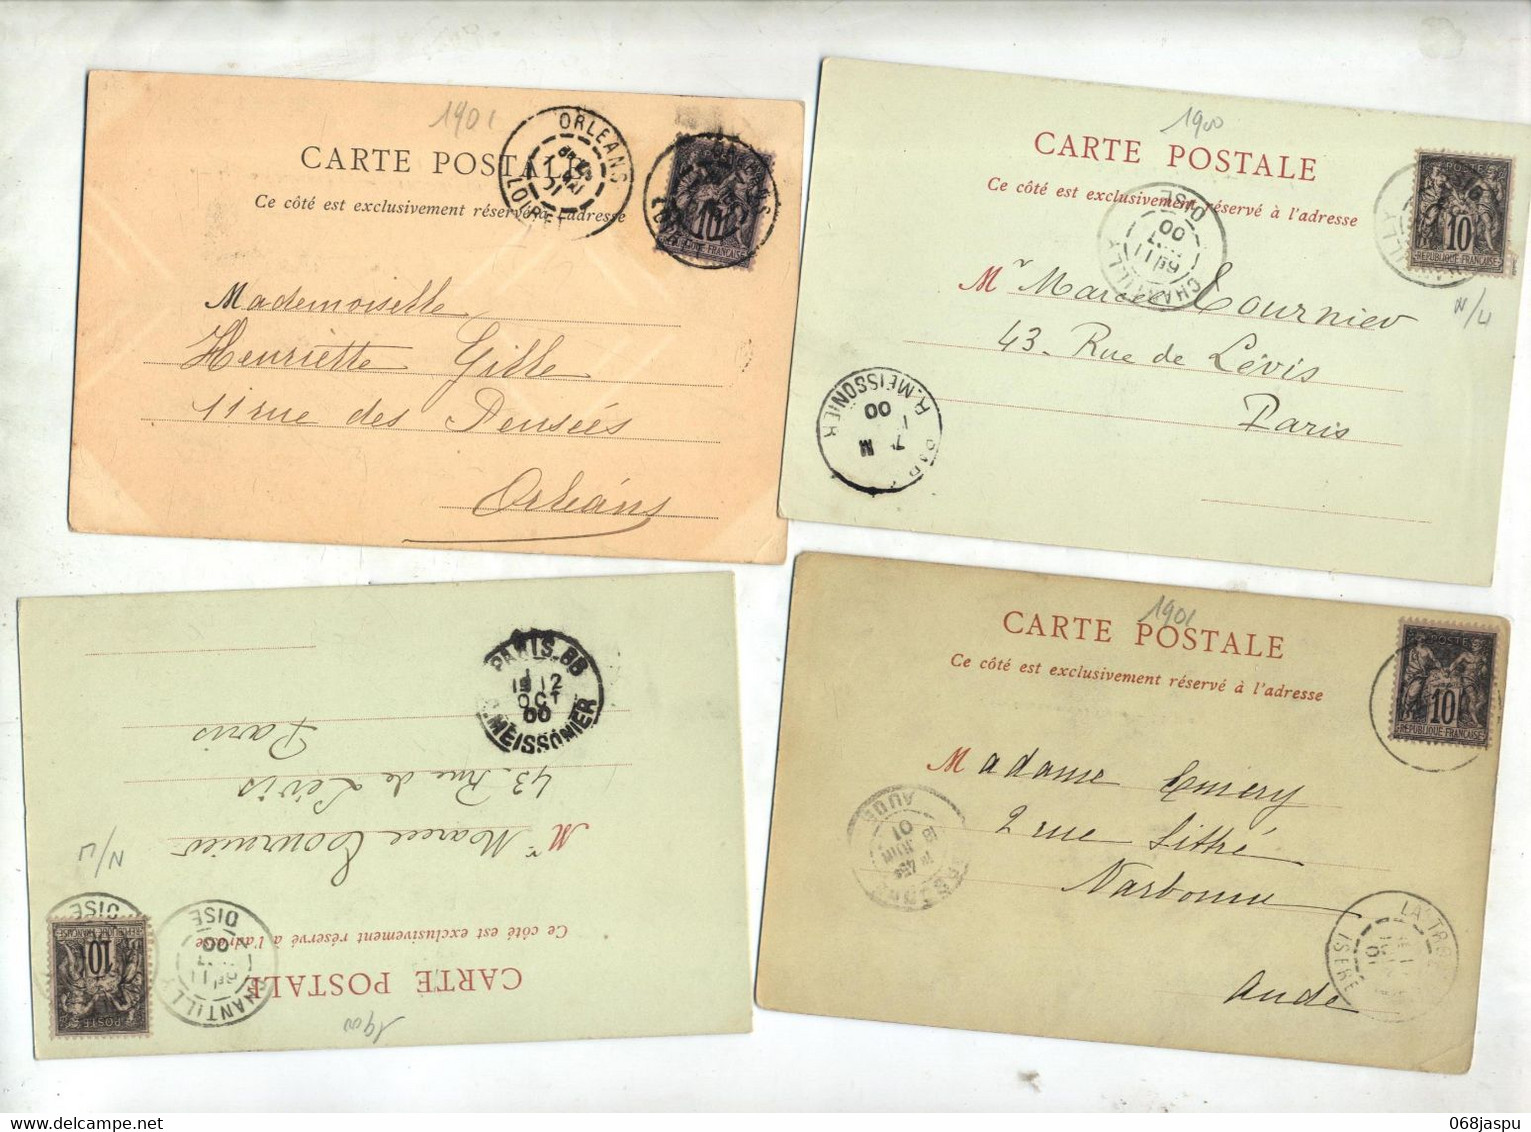 1901
CARTE POSTALE
Ce côté est exclusivement réservé à l'adresse
ORLEANS
LOIRET
POSTE
10
REPUBLIQUE FRANÇAISE
Mademoiselle
Henriette Gille
11 rue des Pensées
Orléans
1900
CARTE POSTALE
Ce côté est exclusivement réservé à l'adresse
OISE
CHANTILLY
00
POSTE
10
REPUBLIQUE FRANÇAISE
N/U
Mr Marcel Tournier
43. Rue de Lévis
Paris
R. MEISSONIER
00
PARIS. 88
12
OCT
00
R. MEISSONIER
Mr Marcel Tournier
43. Rue de Lévis
Paris
N/U
1900
CARTE POSTALE
Ce côté est exclusivement réservé à l'adresse
CHANTILLY
OISE
00
POSTE
10
REPUBLIQUE FRANÇAISE
1901
CARTE POSTALE
Ce côté est exclusivement réservé à l'adresse
POSTE
10
REPUBLIQUE FRANÇAISE
Madame Emery
2 rue Littré
Narbonne
Aude
AUDE
JUIN
01
ISERE
068jaspu